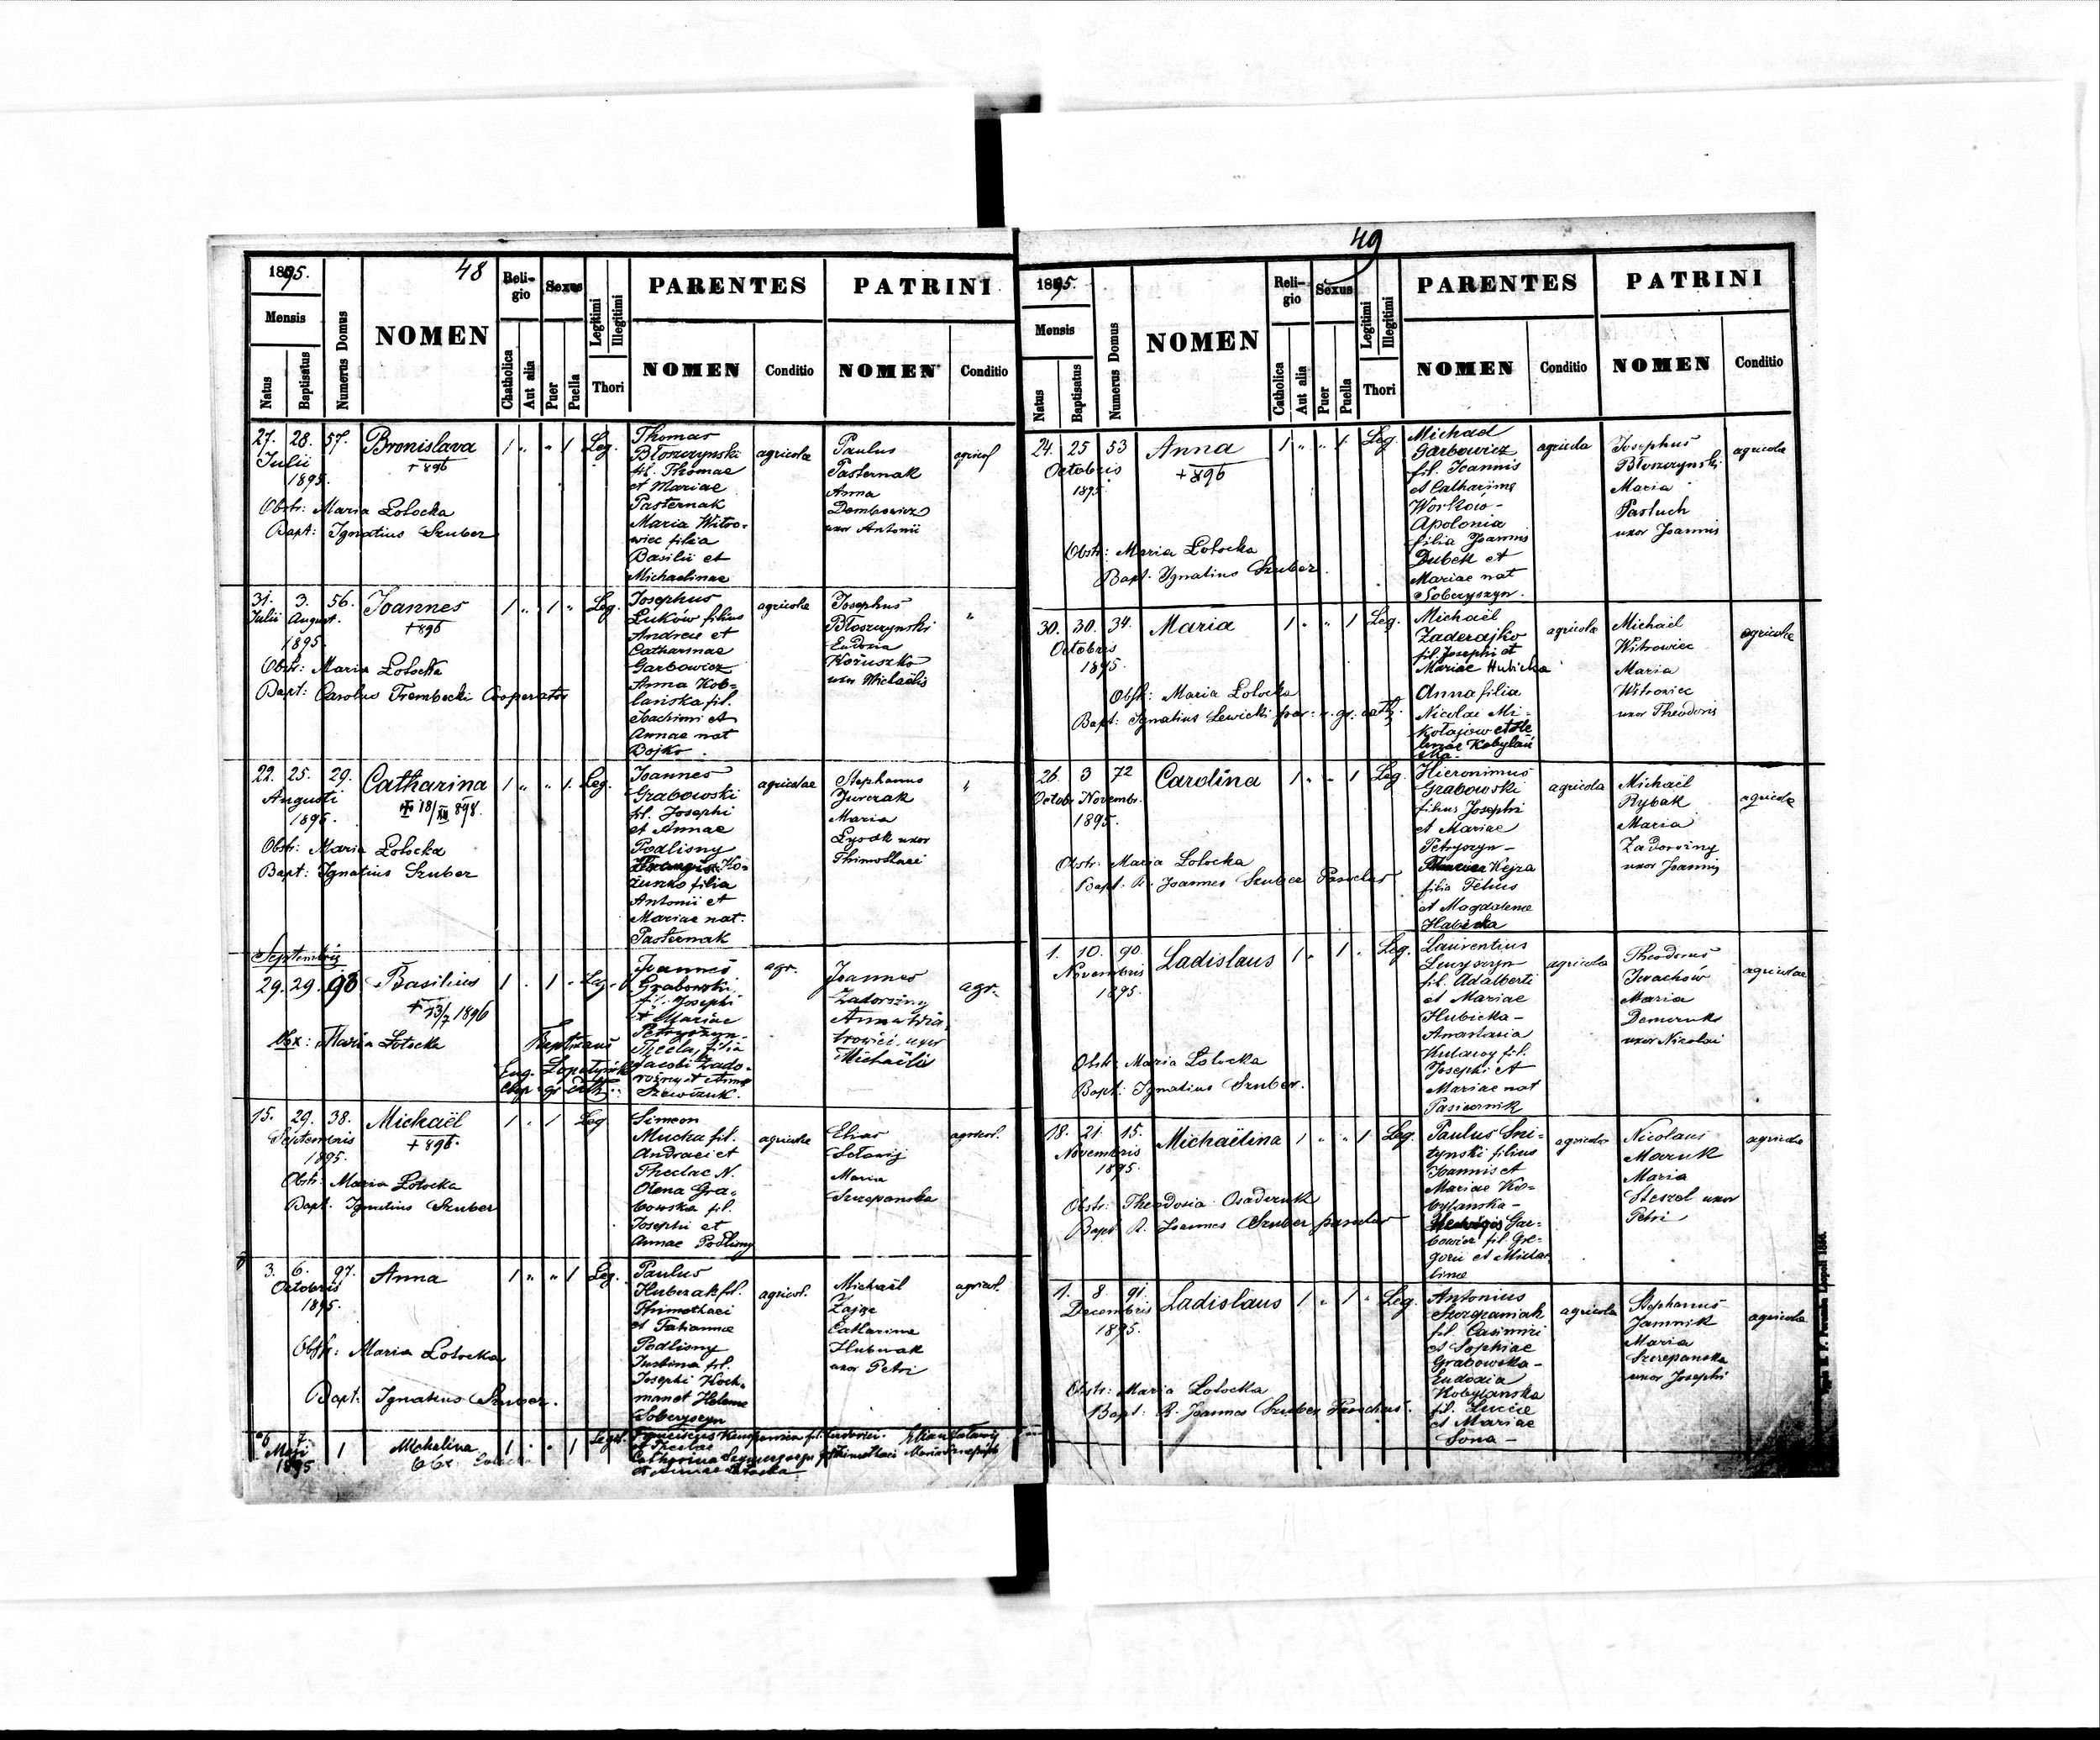 48
1895.
Mensis
Natus
Baptisatus
Numerus Domus
NOMEN
Religio
Chatholica
Aut alia
Sexus
Puer
Puella
Legitimi
Illegitimi
Thori
PARENTES
NOMEN
Conditio
PATRINI
NOMEN
Conditio
27. 28. 57. Bronislava 1 " " 1 Leg.
Julii
1895.
+ 896
Obstr: Maria Lotocka
Bapt: Ignatius Szuber
Thomas
Błoszczynski
fil. Thomae
et Mariae
Pasternak
Maria Witro-
wiec filia
Basilii et
Michaelinae
agricola
Paulus
Pasternak
Anna
Dembowicz
uxor Antonii
agricol
31. 3. 56. Joannes 1 " 1 " Leg.
Julii August.
1895.
+ 896
Obstr: Maria Lotocka
Bapt: Carolus Trembecki Cooperator
Josephus
Łuków filius
Andreae et
Catharinae
Garbowicz
Anna Kob-
lańska fil.
Joachimi et
Annae nat
Bojko
agricola
Josephus
Błoszczynski
Eudoxia
Kożuszko
uxor Michaëlis
"
22. 25. 29. Catharina 1 " " 1 Leg.
Augusti
1895.
18/XII 898.
Obstr: Maria Lotocka
Bapt: Ignatius Szuber
Joannes
Grabowski
fil. Josephi
et Annae
Podlisny
Ko-
żuszko filia
Antonii et
Mariae nat.
Pasternak
agricolae
Stephanus
Jurczak
Maria
uxor
Thimothaei
"
Septembris
29. 29. 98 Basilius 1 . 1 . Leg.
+ 23/7 1896
Obx: Maria Lotocka
Baptizans
Eug.
Joannes
Grabowski
fil. Josephi
et Mariae
Petryszyn
Thecla, filia
Jacobi Zado-
rożny et Annae
Szewczuk.
agr.
Joannes
Zadorożny
Anna
uxor
Michaëlis
agr.
15. 29. 38. Michaël 1 . 1 Leg
Septembris
1895.
+ 896.
Obstr: Maria Lotocka
Bapt. Ignatius Szuber
Simeon
Mucha fil.
Andraei et
Theclae N.
Olena Gra-
bowska fil.
Josephi et
Annae Podlisny
agricola
Elias
Maria
Szczepanska
agricol.
3. 6. 97. Anna 1 " " 1 Leg.
Octobris
1895.
Obstr: Maria Lotocka
Bapt: Ignatius Szuber.
Paulus
Huberak fil.
Thimothaei
et Tatiannae
Podlisny
Justina fil.
Josephi Koch-
man et Helenae
Soberyszyn
agricol.
Michaël
Zając
Catharina
Huberak
uxor Petri
agricol.
6 7.
Maji
1895
1 Michelina 1 . " 1 Legit.
Obs.
Franciscus
et Theclae
Catharina
et Annae
Maria
49
1895.
Mensis
Natus
Baptisatus
Numerus Domus
NOMEN
Religio
Catholica
Aut alia
Sexus
Puer
Puella
Legitimi
Illegitimi
Thori
PARENTES
NOMEN
Conditio
PATRINI
NOMEN
Conditio
24. 25 53 Anna 1 " " 1 Leg.
Octobris
1895
+ 896
Obstr: Maria Lotocka
Bapt. Ignatius Szuber.
Michael
Garbowicz
fil. Joannis
et Catharinae
Worków-
Apolonia
filia Joannis
Dubek et
Mariae nat
Soberyszyn.
agricola
Josephus
Błoszczynski
Maria
Pastuch
uxor Joannis
agricola
30. 30. 34. Maria 1 " " 1 Leg.
Octobris
1895.
Obstr: Maria Lotocka
Bapt: Ignatius Lewicki par. r. gr. cath.
Michaël
Zaderajko
fil. Josephi et
Mariae Hubicka
Anna filia
Nicolai Mi-
kołajów et He
lenae Kobylań
ska-
agricola
Michael
Witrowiec
Maria
Witrowiec
uxor Theodoris
agricola
26. 3 72 Carolina 1 " " 1 Leg.
Octobr. Novembr.
1895.
Obstr: Maria Lotocka
Bapt. R. Joannes Szuber Parochus
Hieronimus
Grabowski
filius Josephi
et Mariae
Petryszyn-
Kejza
filia Felius
et Magdalenae
Hubicka
agricola
Michaël
Rybak
Maria
Zadorożny
uxor Joannis
agricola
1. 10. 90. Ladislaus 1 " 1 . Leg.
Novembris
1895.
Obstr. Maria Lotocka
Bapt: Ignatius Szuber.
Laurentius
fil. Adalberti
et Mariae
Hubicka-
Anastasia
fil.
Josephi et
Mariae nat
Pasiecznik
agricola
Theodorus
Iwachów
Maria
Demczuk
uxor Nicolai
agricolae
18. 21. 15. Michaëlina 1 " " 1 Leg
Novembris
1895.
Obstr: Theodosia Osadczuk
Bapt R. Joannes Szuber parochus
Paulus Sni-
tynski filius
Joannis et
Mariae Ko-
bylanska-
Hedvigis Gar-
bowicz fil. Gre-
gorii et Michae
linae
agricola
Nicolaus
Maruk
Maria
uxor
Petri
agricola
1. 8. 91. Ladislaus 1 " 1 " Leg.
Decembris
1895.
Obstr: Maria Lotocka
Bapt: R. Joannes Szuber Parochus.
Antonius
Szczepaniak
fil. Casimiri
et Sophiae
Grabowska-
Eudoxia
Kobylanska
fil. Lucae
et Mariae
Sowa-
agricola
Stephanus
Jamnik
Maria
Szczepanska
uxor Josephi
agricola